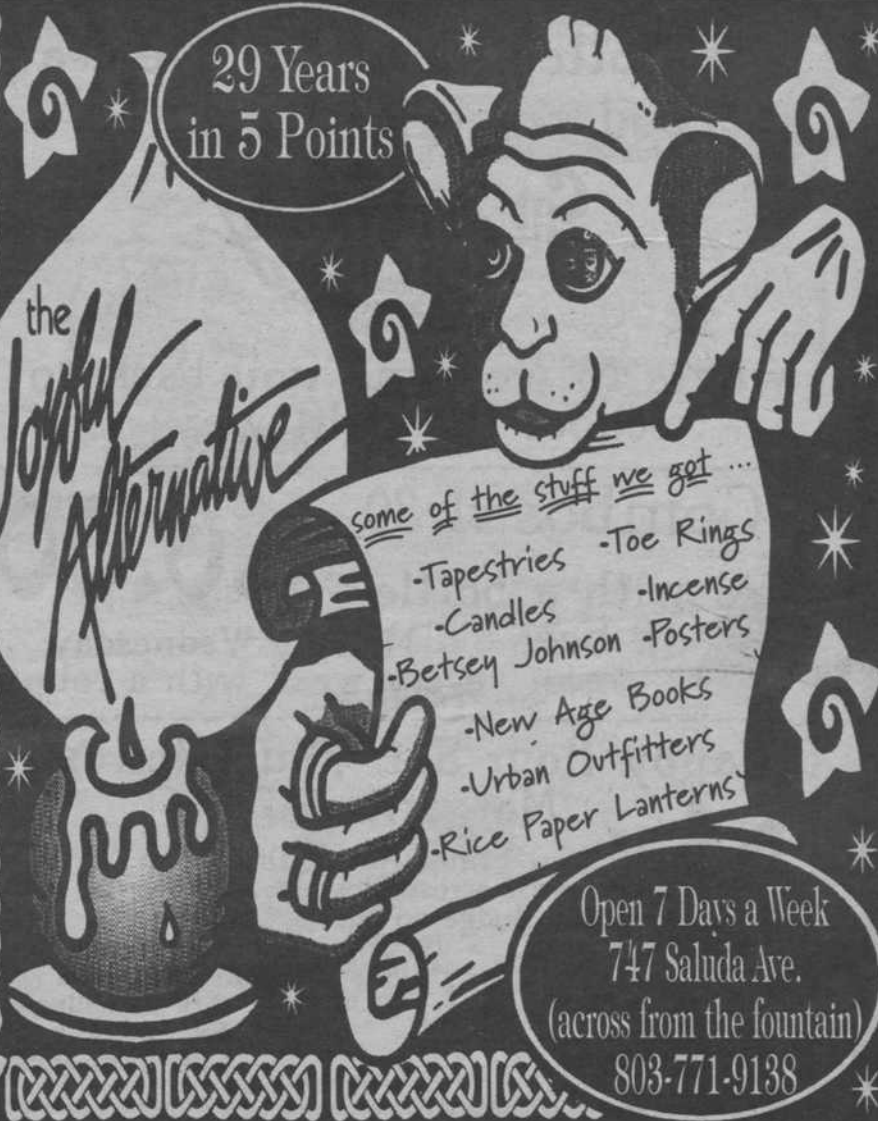 29 Years
in 5 Points
the
Joyful
Alternative
some of the stuff we got ...
-Tapestries -Toe Rings
-Candles -Incense
-Betsey Johnson -Posters
-New Age Books
-Urban Outfitters
-Rice Paper Lanterns
Open 7 Days a Week
747 Saluda Ave.
(across from the fountain)
803-771-9138